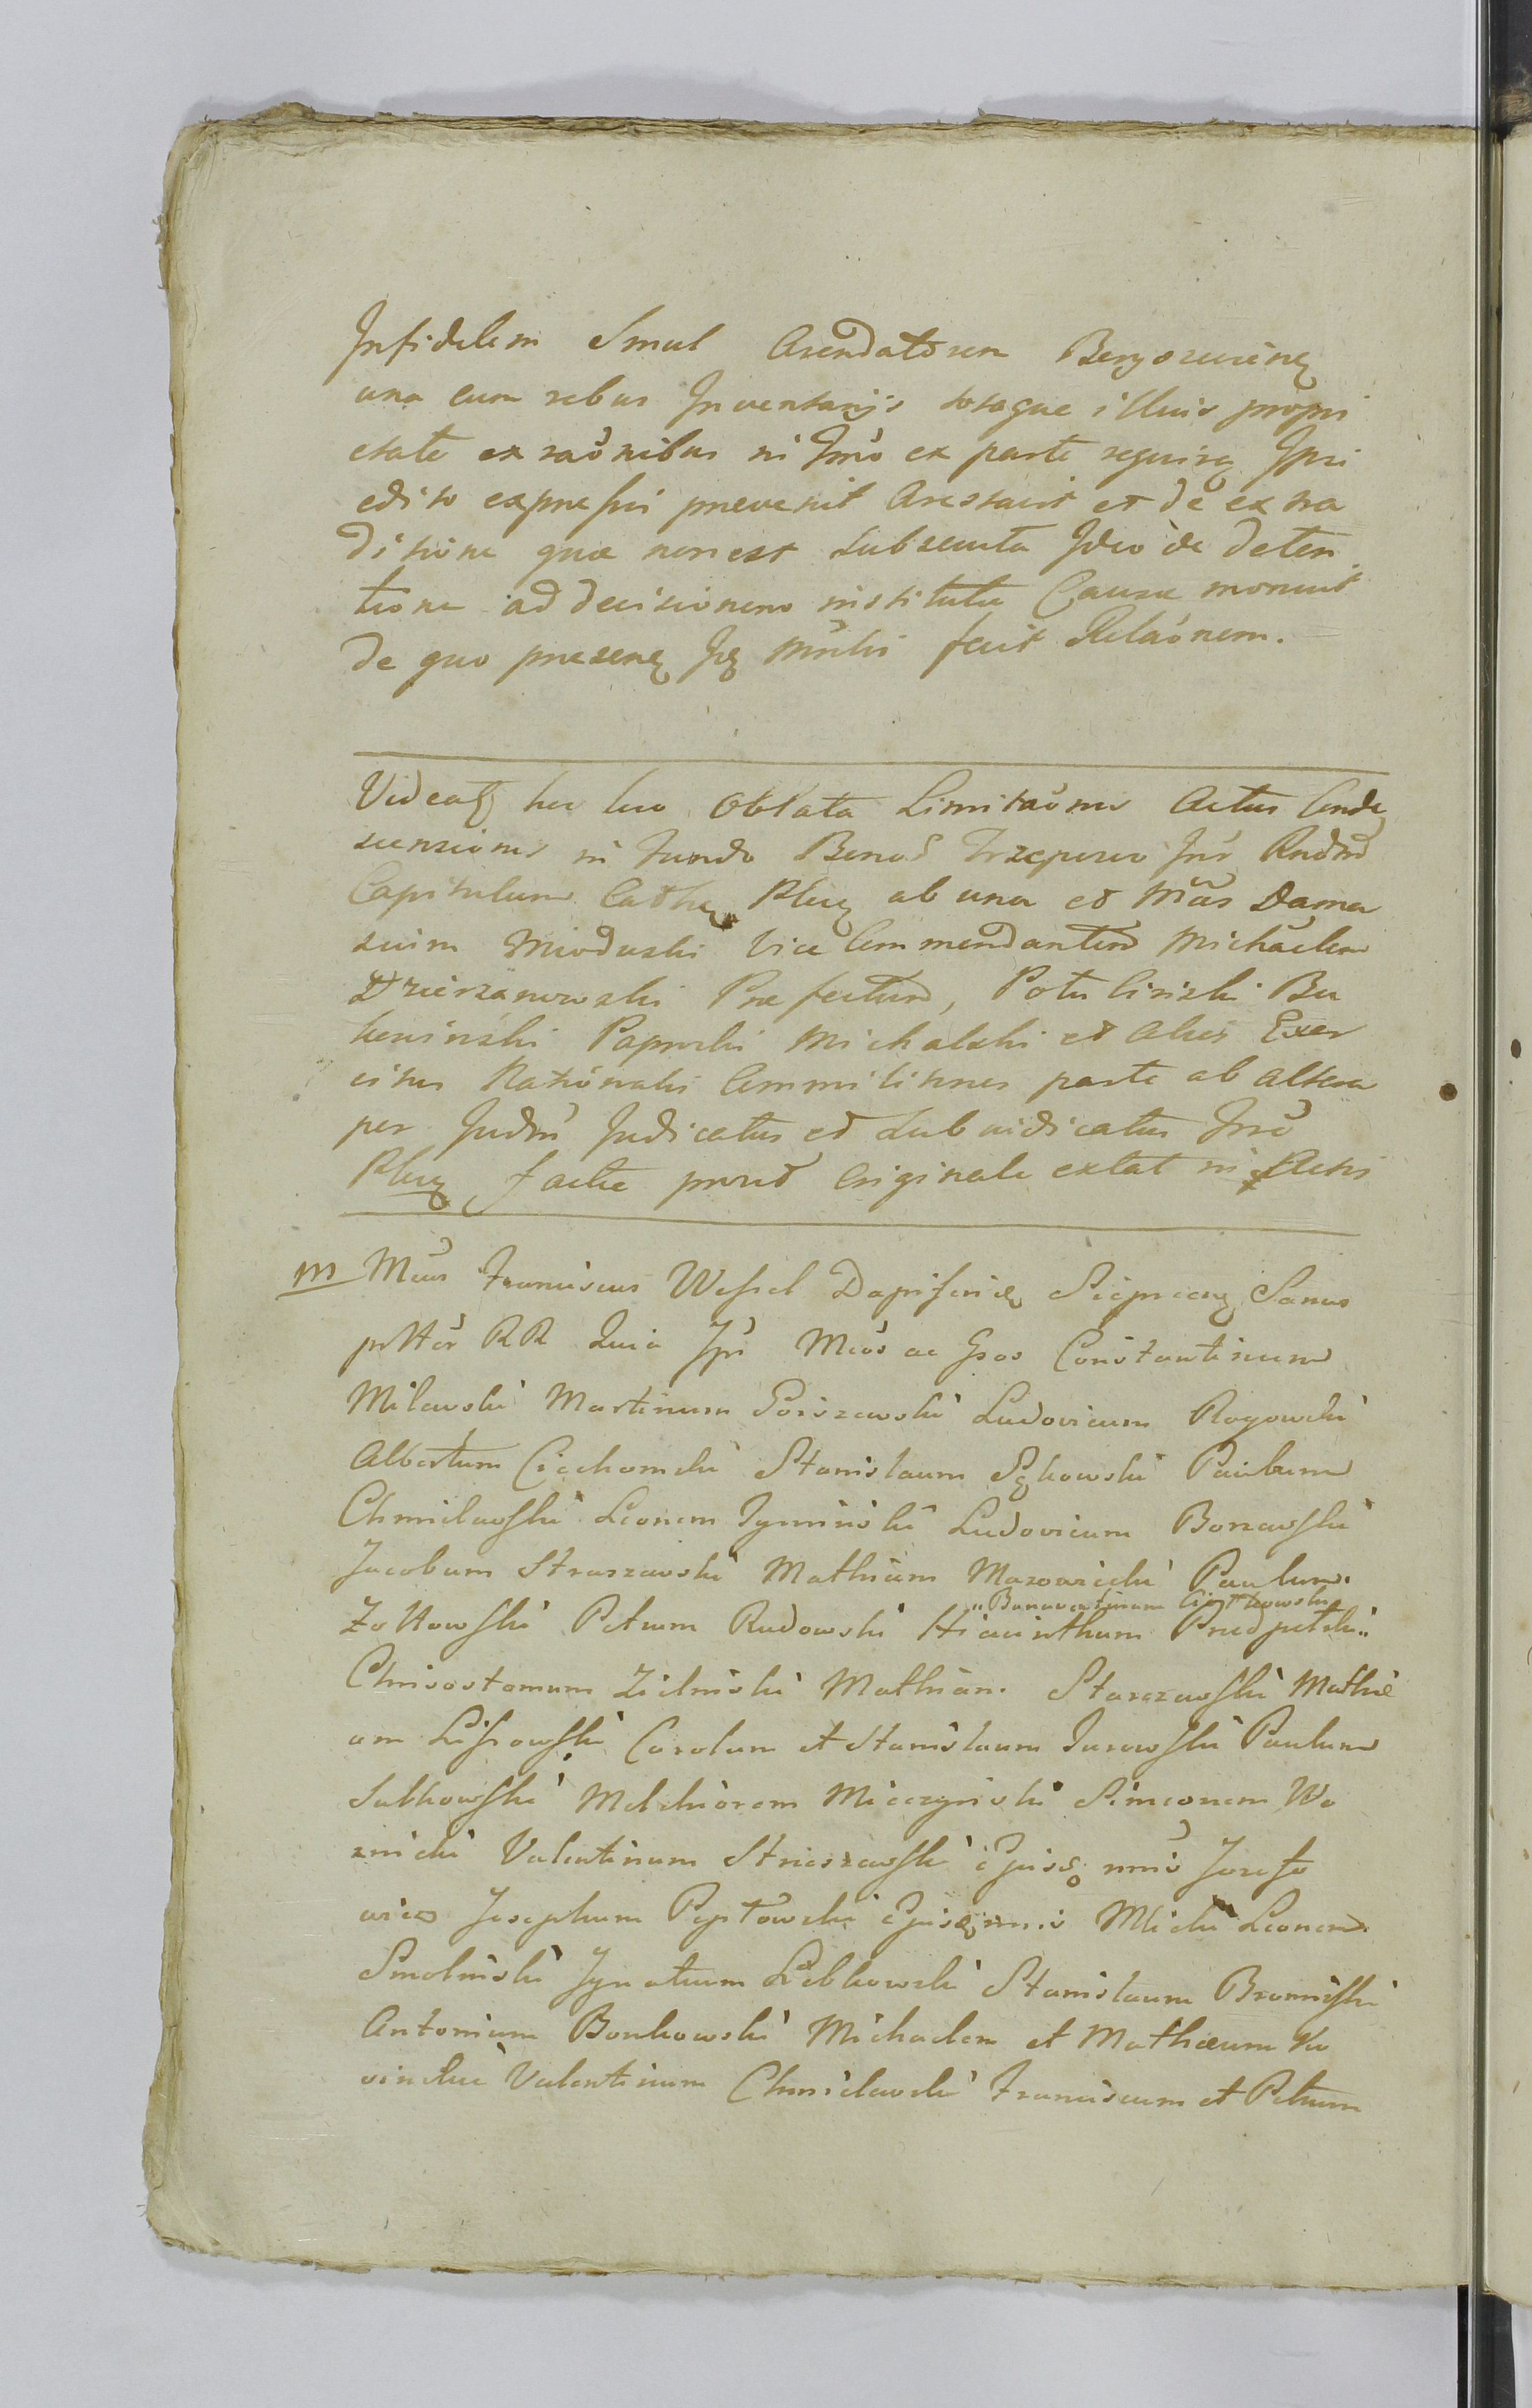 Infidelem Smul Arendatorem Bergoreviens
una cum rebus Inventarijs totaque illius propri
etate ex raõnibus in Imo ex parte require Ipsi
edito expressis prevenit Arestavit et de extra
ditione quæ non est subsecuta Ideo de deten
tione ad decisionem institutæ Causæ monuit
de quo præsens Js Mnrlis fecit Relaõnem.
Videat hoc loco Oblata Limitaõnis Actus Conde
scensionis in Fundo Bonor Trzepowo Intr Rndm
Capitulum Cathe Plæ ab una et Mcos Dama
suim Mioduski Vice Commendantem Michaelem
Dzierzanowski Præfectum, Potulicki Bu
kowinski Paprocki Michalski et alios Exer
citus Nationalis Commilitones parte ab altera
per Judm Judicatus et Subiudicatus Trre
Plæ factæ prout Originale extat in Actis
M Mcus Franciscus Wessel Dapiferic Sieprcens Sanus
prtter RR Quia Ipse Mcos ac Gsos Constantinum
Milewski Martinum Goiszewski Ludovicum Rogowski
Albertum Ciechomski Stanislaum Sękowski Paulum
Chmielewski Leonem Zyminski Ludovicum Borzewski
Jacobum Straszewski Mathiam Mazowiecki Paulum
„Bonaventuram Cieszkowski
Zołtowski Petrum Rudowski Hiacinthum Przedpelski„
Chrisostomum Zielinski Mathiam Starczewski Mathi
am Lissowski Carolum et Stanislaum Turowski Paulum
Sutkowski Melchiorem Mieczynski Simeonem Wo
znicki Valentinum Strzeszewski Ejusq nnis Jozefo
wicz Josephum Peptowski Ejusq nnis Mlicki Leonem
Smolinski Ignatium Łebkowski Stanislaum Bromirski
Antonium Bonkowski Michaelem et Mathæum Ko
sinski Valentinum Chmielewski Franciscum et Petrum